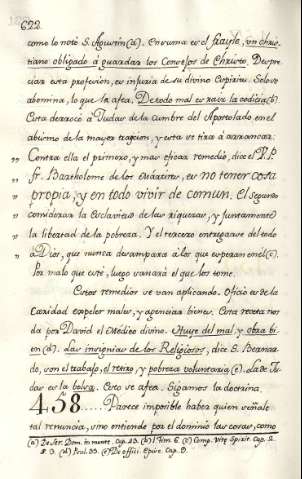 622
como lo notó S. Agustin (a). En suma es el frayle, un chris-
tiano obligado á guardar los Consejos de Christo. Despre-
ciar esta profesion, es injuria de su divino Espiritu. Solo se
abomina, lo que la afea. De todo mal es raiz la codicia (b).
Esta derrocó á Judas de la cumbre del Apostolado en el
abismo de la mayor traycion, y esta se tira á arrancar.
Contra ella el primero, y mas eficaz remedio, dice el V. P.
Fr. Bartholome de los Martires, es no tener cosa
propia, y en todo vivir de comun. El segundo
considerar la esclavitud de las riquezas, y juntamente
la libertad de la pobreza. Y el tercero entregarse del todo
a Dios, que nunca desampara á los que esperan en el (c).
Por malo que esté, luego sanará el que los tome.
Estos remedios se van aplicando. Oficio es de la
Caridad expeler males, y agenciar bienes. Esta receta nos
da por David el Medico divino. Huye del mal, y obra bi-
en (d). Las insignias de los Religiosos, dice S. Bernar-
do, son el trabajo, el retiro, y pobreza voluntaria (e). La de Ju-
das es la bolsa. Esto se afea. Sigamos la doctrina.
458..... Parece imposible haber quien señale
tal renuncia, sino entiende por el dominio las cosas, como
(a) De Ser. Dom. in monte. Cap. 13. (b) I Tim. 6. (c) Comp. Vitę Spirit. Cap. 2.
§. 3. (d) Psal. 33. (e) De offici. Episc. Cap. 9.